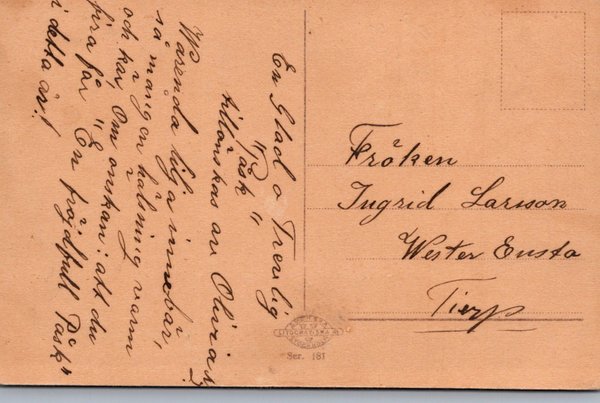 En Glad o Trevlig
"Påsk"
tillönskas av Olivia
Varenda lilja innebär,
så mången hälsning varm
och kär, Om önskan: att du
fira får "En fröjdfull Påsk"
i detta år!
Fröken
Ingrid Larsson
Wester Ensta
Tierp
LITOGRAFISKA
Ser. 181